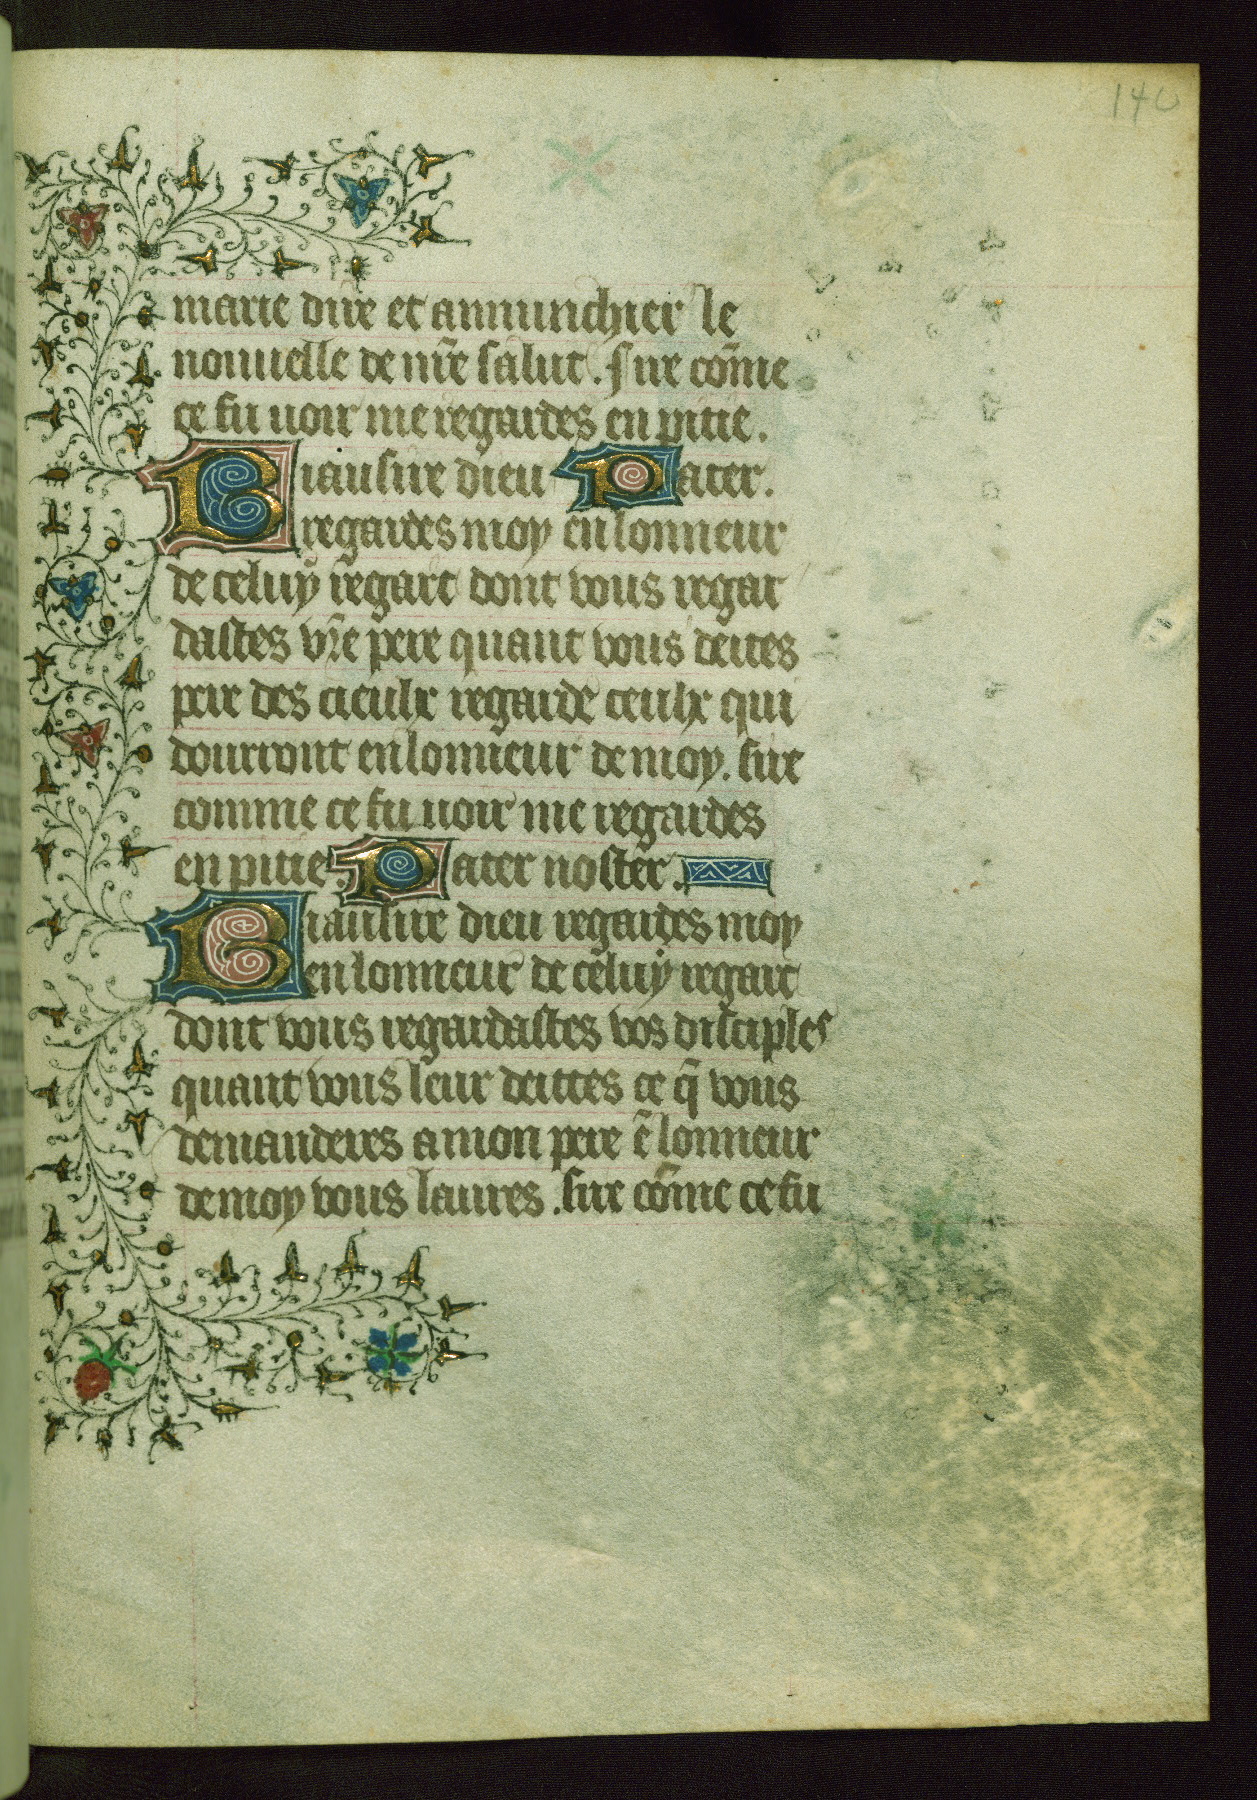 140
marie dire et annunchier le
nouuelle de nr̄e salut. Sire cōme
ce fu uoir me regardes en pitie.
Biausire dieu Pater.
regardes moy en lonneur
de celuy regart dont vous regar
dastes vr̄e pere quant vous deites
pere des cieulx regarde ceulx qui
dourront en lonneur de moy. sire
comme ce fu uoir me regardes
en pitie. Pater noster.
Biausire dieu regardes moy
en lonneur de celuy regart
dont vous regardastes vos disciples
quant vous leur deittes ce q̄ vous
demanderes a mon pere ē lonneur
de moy vous laures. sire cōme ce fu